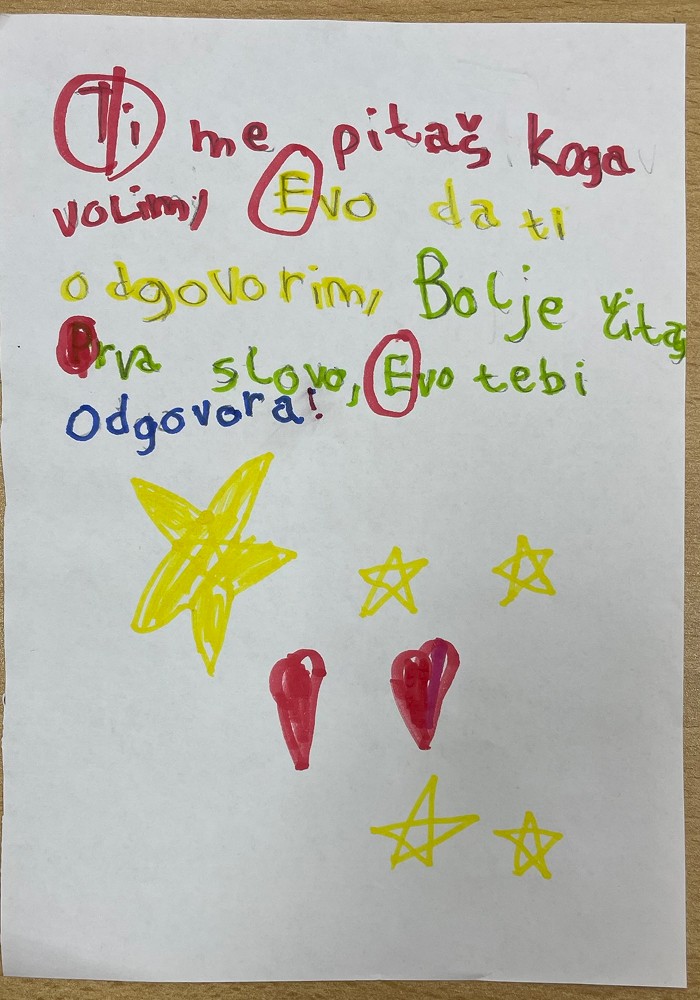 Ti me pitaš koga
volim, Evo da ti
odgovorim, Bolje čitaj
Prva slova, Evo tebi
Odgovora!